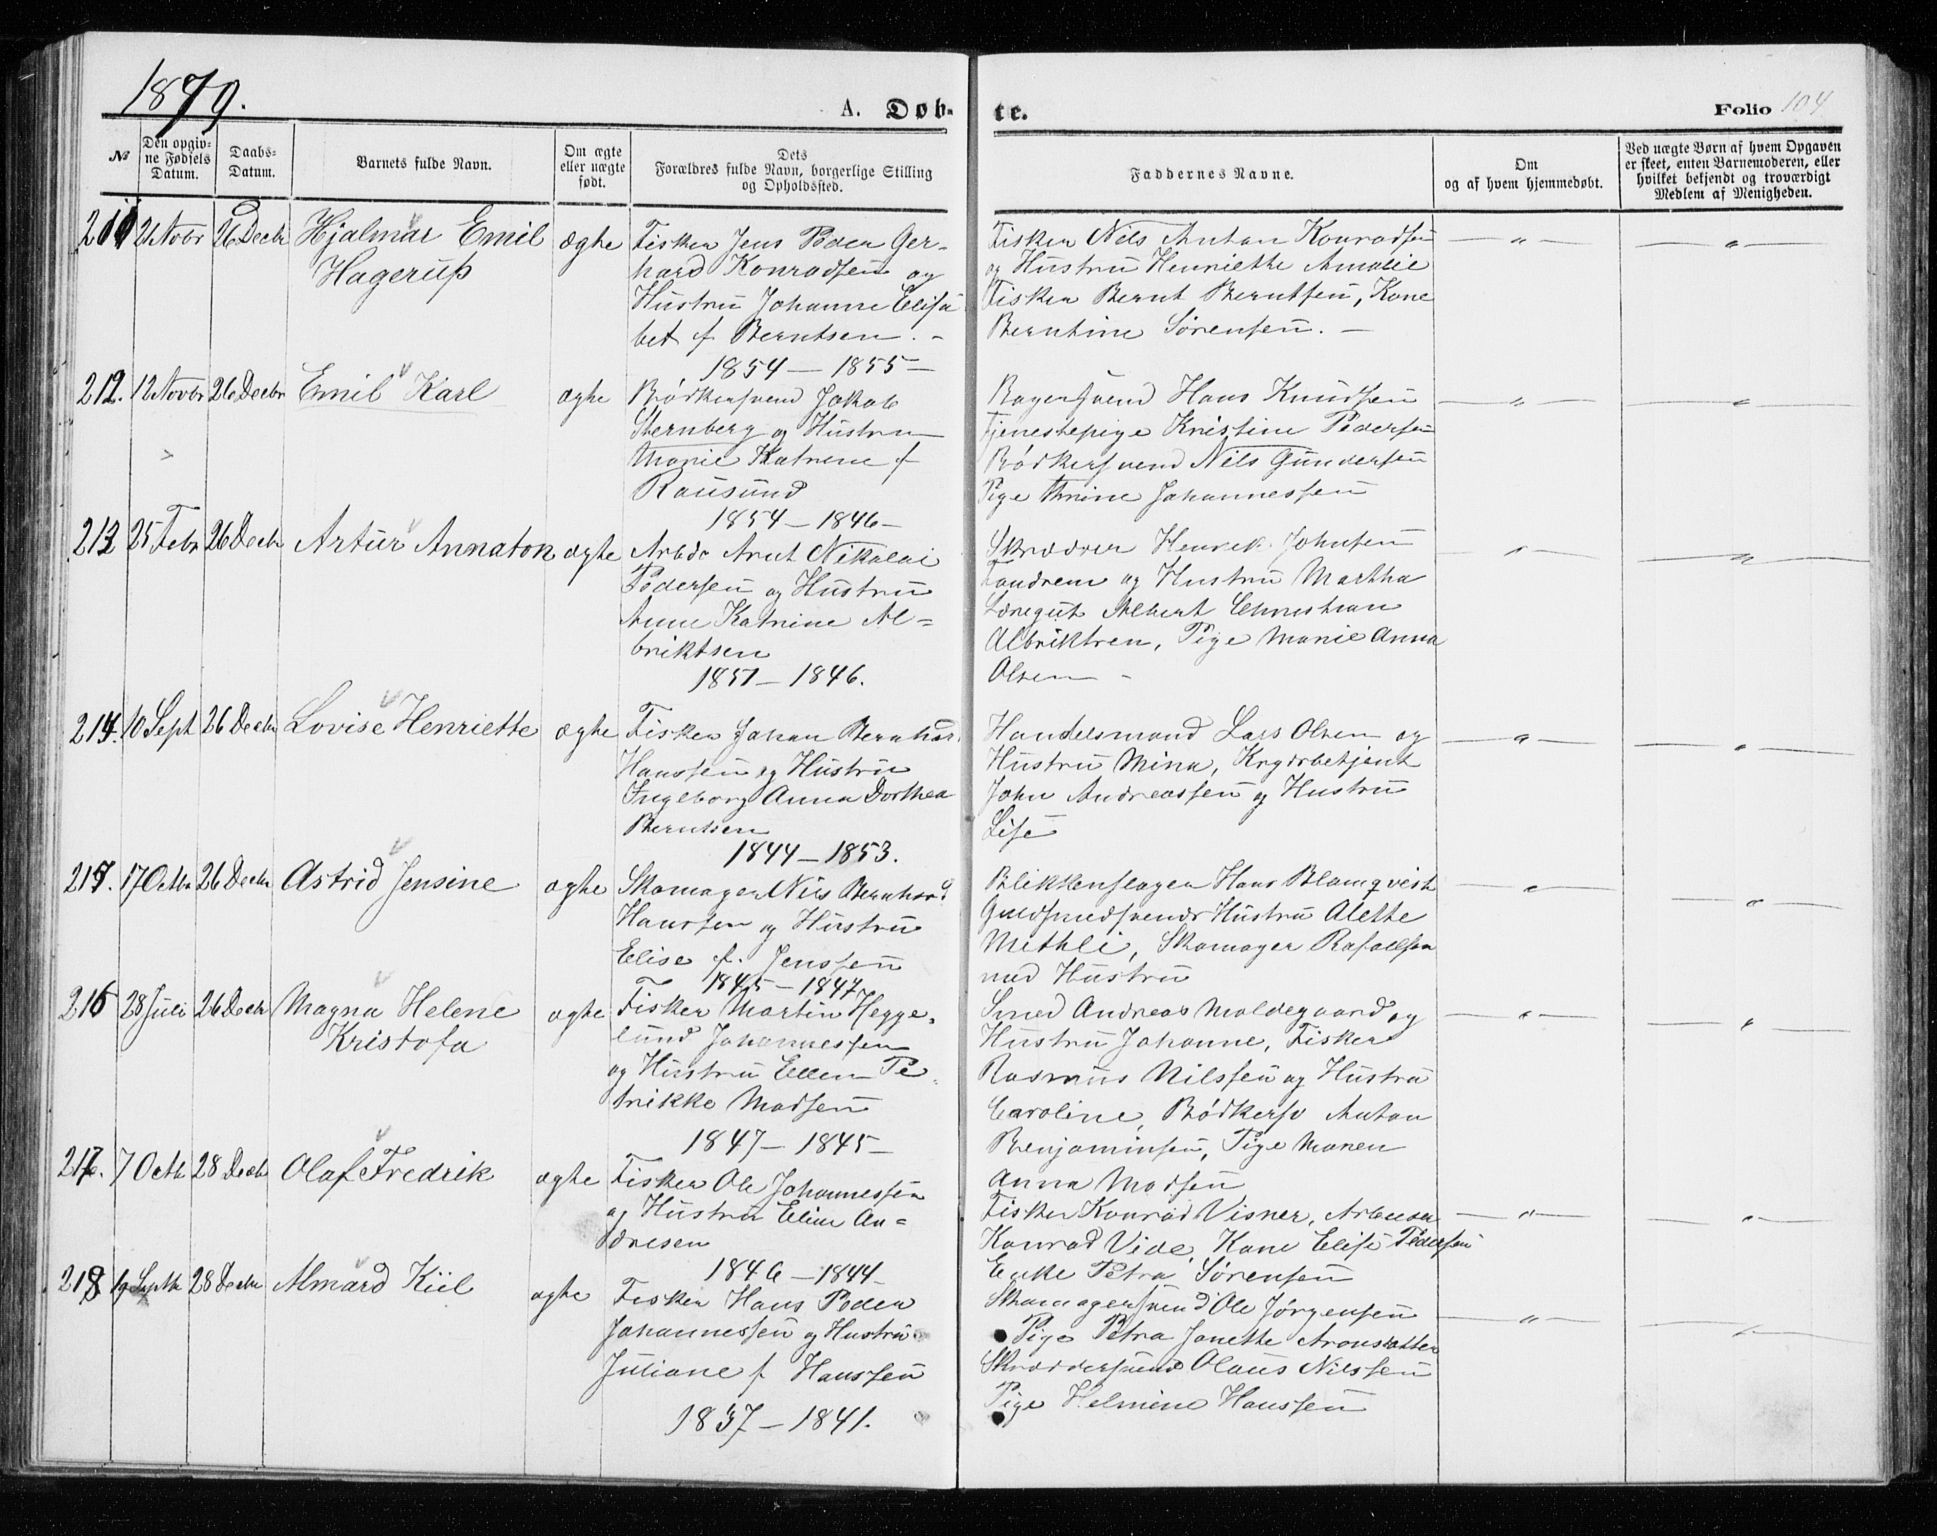 1879.
A. Døb-
te.
Folio 104
№
Den opgiv-
ne Fødsels
Datum.
Daabs-
Datum.
Barnets fulde Navn.
Om ægte
eller uægte
født.
Dets
Forældres fulde Navn, borgerlige Stilling
og Opholdssted.
Faddernes Navne.
Om
og af hvem hjemmedøbt.
Ved uægte Børn af hvem Opgaven
er skeet, enten Barnemoderen, eller
hvilket bekjendt og troværdigt
Medlem af Menigheden.
211 2 Novbr 26 Decbr Hjalmar Emil ægte
Hagerup
Fisker Jens Peder Ger-
hard Konradsen og
Hustru Johanne Elisa
bet f Berntsen. -
1854 - 1855 -
Fisker Nils Anton Konradsen
og Hustru Henriette Amalie
Fisker Bernt Berntsen, Kone
Berntine Sørensen. -
212. 12 Novbr 26 Decbr Emil Karl ægte
Bødkersvend Jakob
Sternberg og Hustru
Marie Katrine f
Rausund
1854 - 1846 -
Bagersvend Hans Knudsen
Tjenestepige Kristine Pedersen
Bødkersvend Nils Gundersen
Pige Trine Johannessen
213 25 Febr 26 Decbr Artur Annaton ægte
Arbdr Arnt Nikolai
Pedersen og Hustru
Anne Katrine Al=
briktsen
1851 - 1846.
Skrædder Henrik Johnsen
Tandrem og Hustru Martha
Læregut Albert Christian
Albriktsen, Pige Marie Anna
Olsen -
214. 10 Sept 26 Decbr Lovise Henriette ægte
Fisker Johan Bernhar.
Hanssen og Hustru
Ingeborg Anna Dorthea
Berntsen
1844 - 1853.
Handelsmand Lars Olsen og
Hustru Mina, Krydsbetjent
John Andreassen og Hustru
Lise
215. 17 Octbr 26 Decbr Astrid Jensine ægte
Skomager Nils Bernhard
Hanssen og Hustru
Elise f. Jenssen
1845 - 1847
Blikkenslager Hans Blomqvist
Guldsmedsvends Hustru Alette
Methli, Skomager Rafaelsen
med Hustru
216 28 Juli 26 Decbr Magna Helene ægte
Kristofa
Fisker Martin Hegge-
lund Johannessen
og Hustru Ellen Pe-
trikke Madsen
1847 - 1845 -
Smed Andreas Moldegaard og
Hustru Johanne, Fisker
Rasmus Nilssen og Hustru
Caroline, Bødkersv Anton
Benjaminsen, Pige Maren
Anna Madsen
217. 7 Octb 28 Decbr Olaf Fredrik ægte
Fisker Ole Johannessen
og Hustru Eline An=
dresen
1846 - 1844 -
Fisker Konrad Visner, Arbeider
Konrad Vide, Kone Elise Pedersen
Enke Petra Sørensen
218 19 Septb 28 Decbr Almard Kiil ægte
Fisker Hans Peder
Johannessen og Hustru
Juliane f Hanssen
1837 - 1841.
Skomagersvend Ole Jørgensen
Pige Petra Janette Aronsdatter
Skræddersvend Olaus Nilssen
Pige Helmine Hanssen